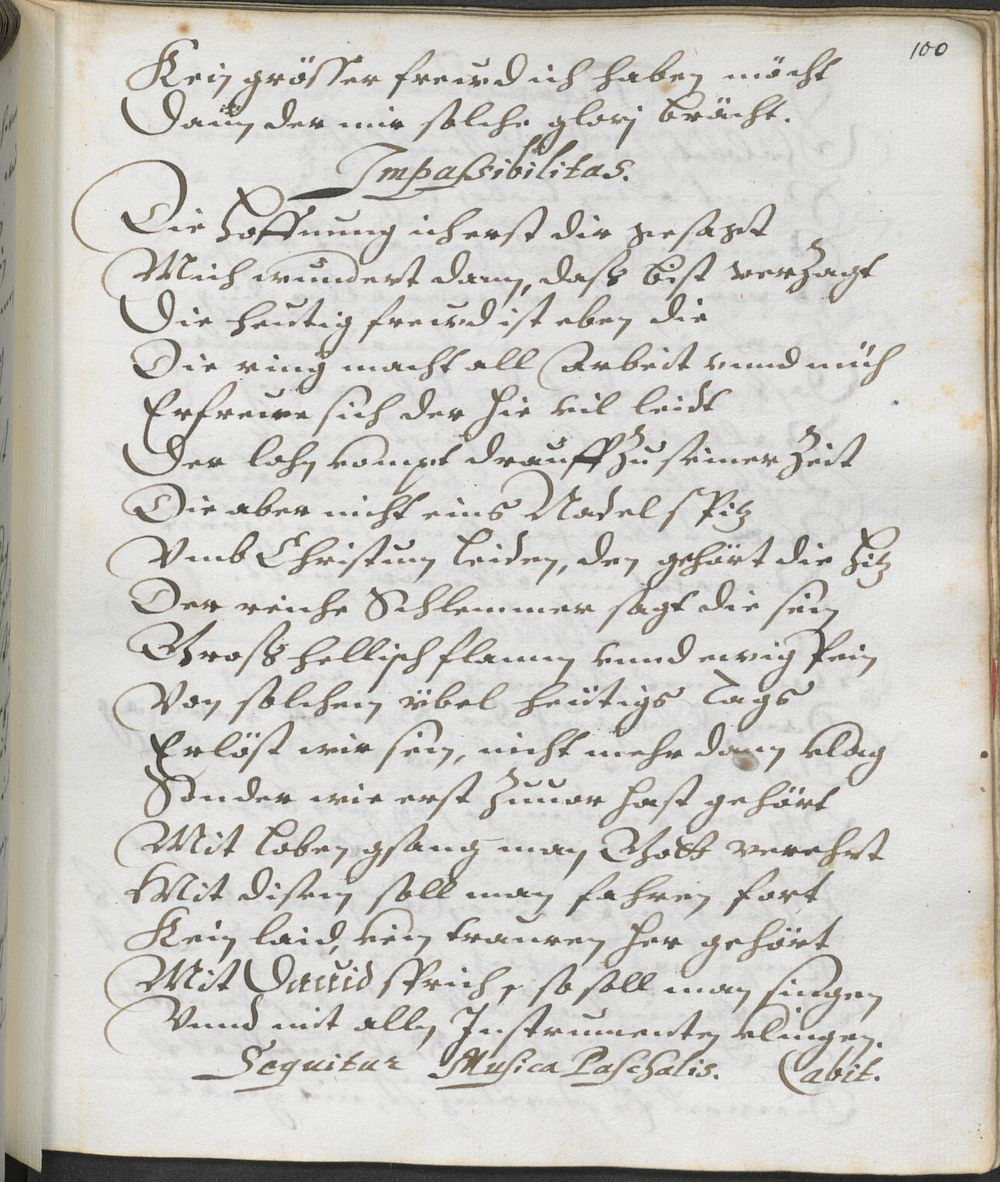 100
Kein grösser freüd ich haben möcht
Dann der mir solche glorj brächt.
Impassibilitas.
Die Hoffnung ich erst dir gesagt
Mich wundert dann, daß bist verzagt
Die heütig freüd ist eben die
Die ring macht all Arbeit vnnd müh
Erfrewe sich der hie vil leidt
Der lohn kompt drauff zu seiner Zeit
Die aber nicht eins Nadel spitz
Vmb Christum leiden, den gehört die Hitz
Der reiche Schlemmer sagt die sein
Groß hellisch flamm vnnd ewig Pein
Von solchem übel heütigs Tags
Erlöst wir sein, nicht mehr dann klag
Sonder wie erst zuuor hast gehört
Mit loben gsang man Gott verehrt
Mit disem soll man fahren fort
Kein laid, kein trauren her gehört
Mit Dauid sprich, so soll man singen
Vnnd mit alln Instrumenten klingen.
Sequitur Musica Paschalis. abit.